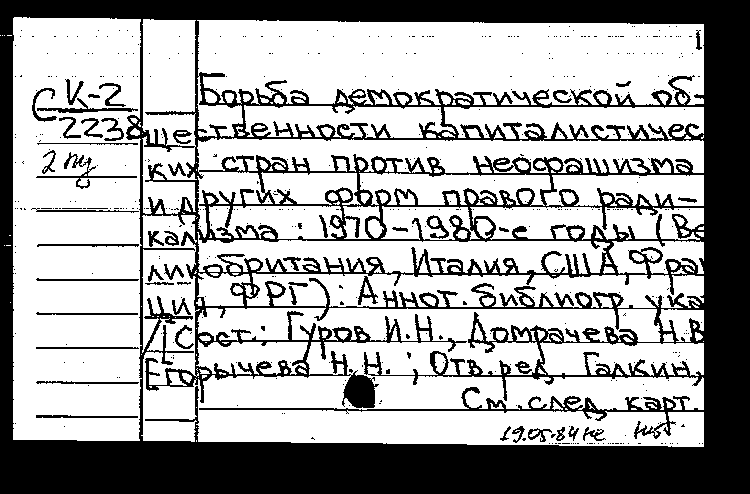 1
С К-2
2238
2 пу
Борьба демократической об-
щественности капиталистичес
ких стран против неофашизма
и других форм правого ради-
кализма : 1970-1980-е годы (Ве
ликобритания, Италия, США, Фран
ция, ФРГ) : Аннот. библиогр. ука
/[Сост.: Гуров И.Н., Домрачева Н.В
Егорычева Н.Н. ; Отв. ред. Галкин,
См. след. карт.
19.05-84